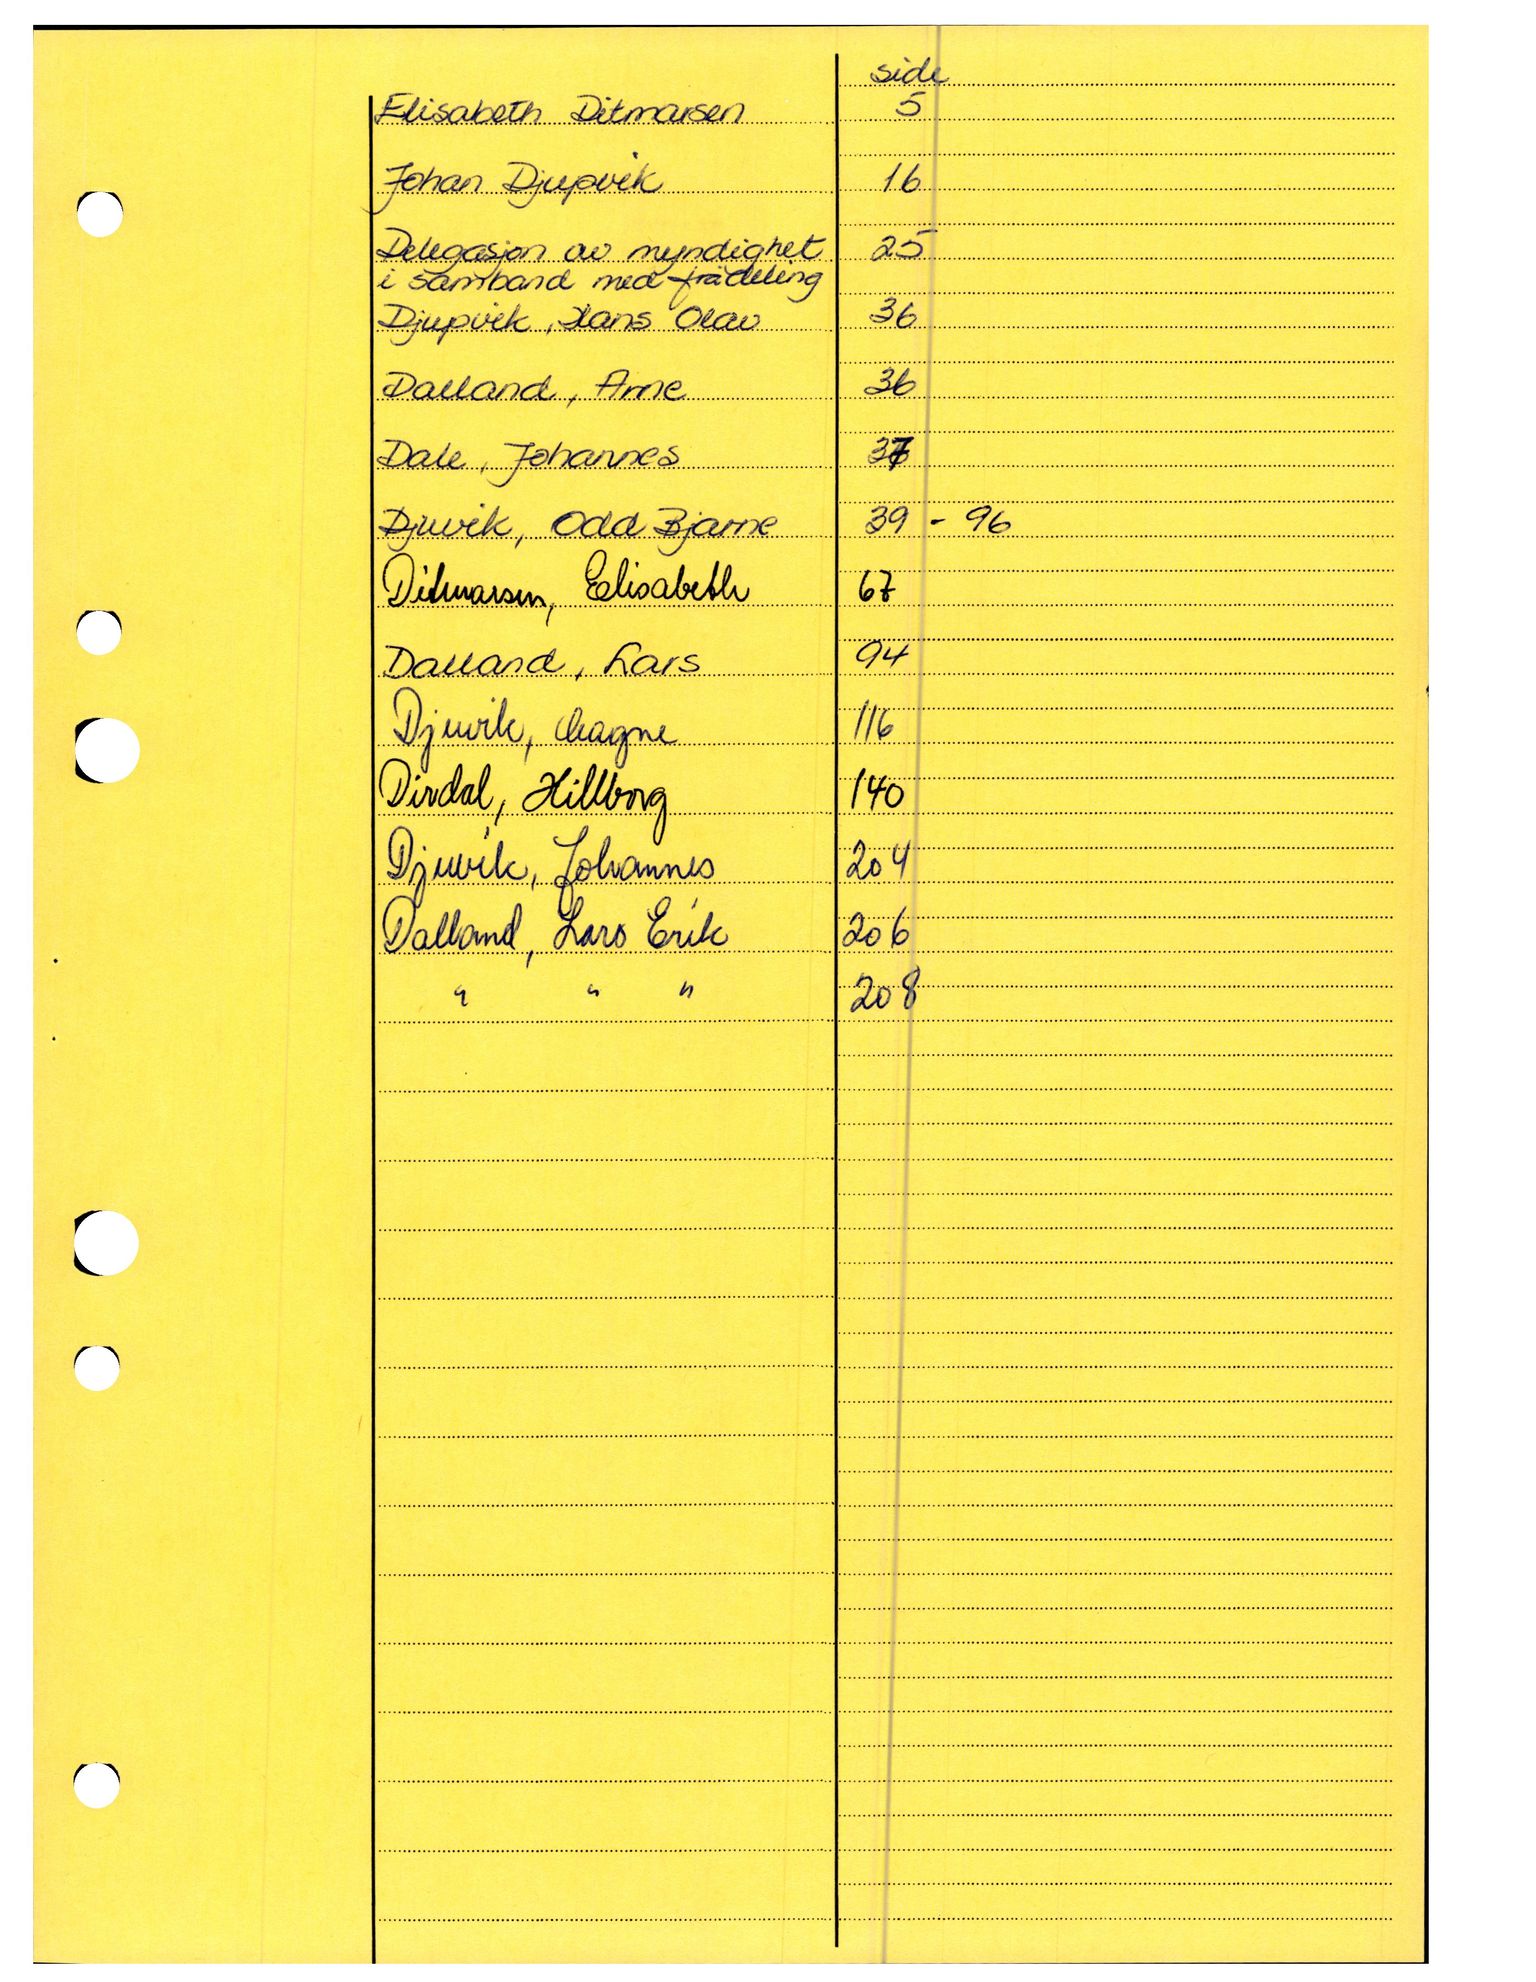 side
Elisabeth Ditmarsen 5
Johan Djupvik 16
Delegasjon av myndighet 25
i samband med frådeling
Djupvik, Hans Olav 36
Dalland, Arne 36
Dale, Johannes 37
Djuvik, Odd Bjarne 39 - 96
Ditmarsen, Elisabeth 67
Dalland, Lars 94
Djuvik, Magne 116
Dirdal, Hillborg 140
Djuvik, Johannes 204
Dalland, Lars Erik 206
" " " 208